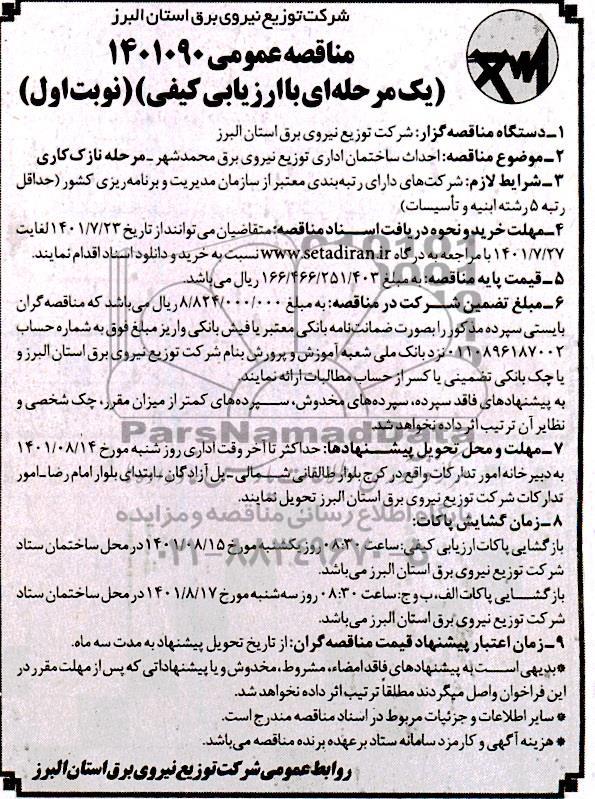 شرکت توزیع نیروی برق استان البرز
مناقصه عمومی ۱۴۰۱۰۹۰
(یک مرحله‌ای با ارزیابی کیفی) (نوبت اول)
۱ـ دستگاه مناقصه گزار: شرکت توزیع نیروی برق استان البرز
۲ـ موضوع مناقصه: احداث ساختمان اداری توزیع نیروی برق محمدشهر ـ مرحله نازک کاری
۳ـ شرایط لازم: شرکت‌های دارای رتبه‌بندی معتبر از سازمان مدیریت و برنامه‌ریزی کشور (حداقل
رتبه ۵ رشته ابنیه و تأسیسات)
۴ـ مهلت خرید و نحوه دریافت اسناد مناقصه: متقاضیان می‌توانند از تاریخ ۱۴۰۱/۷/۲۳ لغایت
۱۴۰۱/۷/۲۷ با مراجعه به درگاه www.setadiran.ir نسبت به خرید و دانلود اسناد اقدام نمایند.
۵ـ قیمت پایه مناقصه: به مبلغ ۱۶۶/۴۶۶/۲۵۱/۴۰۳ ریال می‌باشد.
۶ـ مبلغ تضمین شرکت در مناقصه: به مبلغ ۸/۸۲۴/۰۰۰/۰۰۰ ریال می‌باشد که مناقصه‌گران
بایستی سپرده مذکور را بصورت ضمانت‌نامه بانکی معتبر یا فیش بانکی واریز مبلغ فوق به شماره حساب
۰۱۱۰۸۹۶۱۸۷۰۰۲ نزد بانک ملی شعبه آموزش و پرورش بنام شرکت توزیع نیروی برق استان البرز و
یا چک بانکی تضمینی یا کسر از حساب مطالبات ارائه نمایند.
به پیشنهادهای فاقد سپرده، سپرده‌های مخدوش، سپرده‌های کمتر از میزان مقرر، چک شخصی و
نظایر آن ترتیب اثر داده نخواهد شد.
ParsNamadData
۷ـ مهلت و محل تحویل پیشنهادها: حداکثر تا آخر وقت اداری روز شنبه مورخ ۱۴۰۱/۰۸/۱۴
به دبیرخانه امور تدارکات واقع در کرج بلوار طالقانی شمالی ـ پل آزادگان ـ ابتدای بلوار امام رضا ـ امور
تدارکات شرکت توزیع نیروی برق استان البرز تحویل نمایند.
پایگاه اطلاع رسانی مناقصه و مزایده
۸ـ زمان گشایش پاکات:
بازگشایی پاکات ارزیابی کیفی: ساعت ۰۸:۳۰ روز یکشنبه مورخ ۱۴۰۱/۰۸/۱۵ در محل ساختمان ستاد
شرکت توزیع نیروی برق استان البرز می‌باشد.
بازگشایی پاکات الف، ب و ج: ساعت ۰۸:۳۰ روز سه‌شنبه مورخ ۱۴۰۱/۸/۱۷ در محل ساختمان ستاد
شرکت توزیع نیروی برق استان البرز می‌باشد.
۹ـ زمان اعتبار پیشنهاد قیمت مناقصه گران: از تاریخ تحویل پیشنهاد به مدت سه ماه.
*بدیهی است به پیشنهادهای فاقد امضاء، مشروط، مخدوش و یا پیشنهاداتی که پس از مهلت مقرر در
این فراخوان واصل میگردند مطلقاً ترتیب اثر داده نخواهد شد.
* سایر اطلاعات و جزئیات مربوط در اسناد مناقصه مندرج است.
* هزینه آگهی و کارمزد سامانه ستاد بر عهده برنده مناقصه می‌باشد.
روابط عمومی شرکت توزیع نیروی برق استان البرز